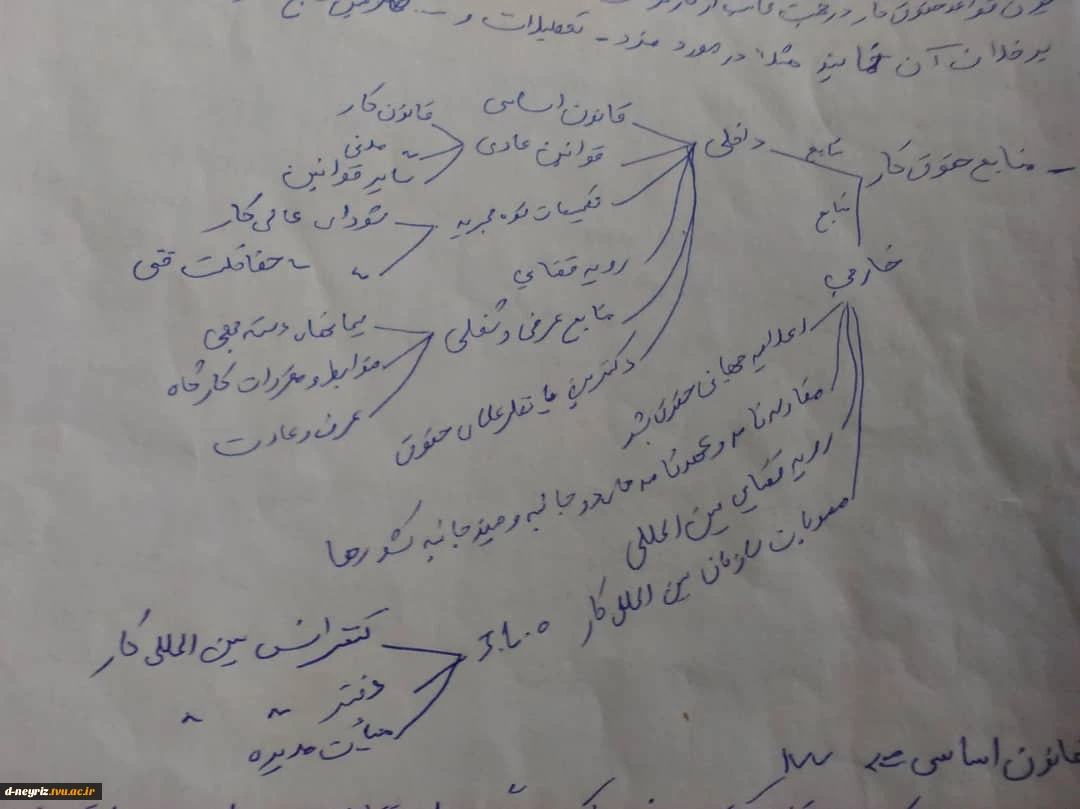 یر خلاف آن نمایند مثلا در مورد مزد - تعطیلات و
- منابع حقوق کار
منابع داخلی
قانون اساسی
قوانین عادی
قانون کار
" مدنی
سایر قوانین
تصمیمات قوه مجریه
شورای عالی کار
" حفاظت فنی
رویه قضایی
منابع عرفی و شغلی
پیمانهای دسته جمعی
ضوابط و مقررات کارگاه
عرف و عادت
دکترین یا نظر علمای حقوق
منابع خارجی
اعلامیه جهانی حقوق بشر
مقاوله نامه و عهدنامه های دو جانبه و چند جانبه کشورها
رویه قضایی بین المللی
مصوبات سازمان بین المللی کار I.L.O
کنفرانس بین المللی کار
دفتر " "
هیأت مدیره
قانون اساسی
d-neyriz.tvu.ac.ir